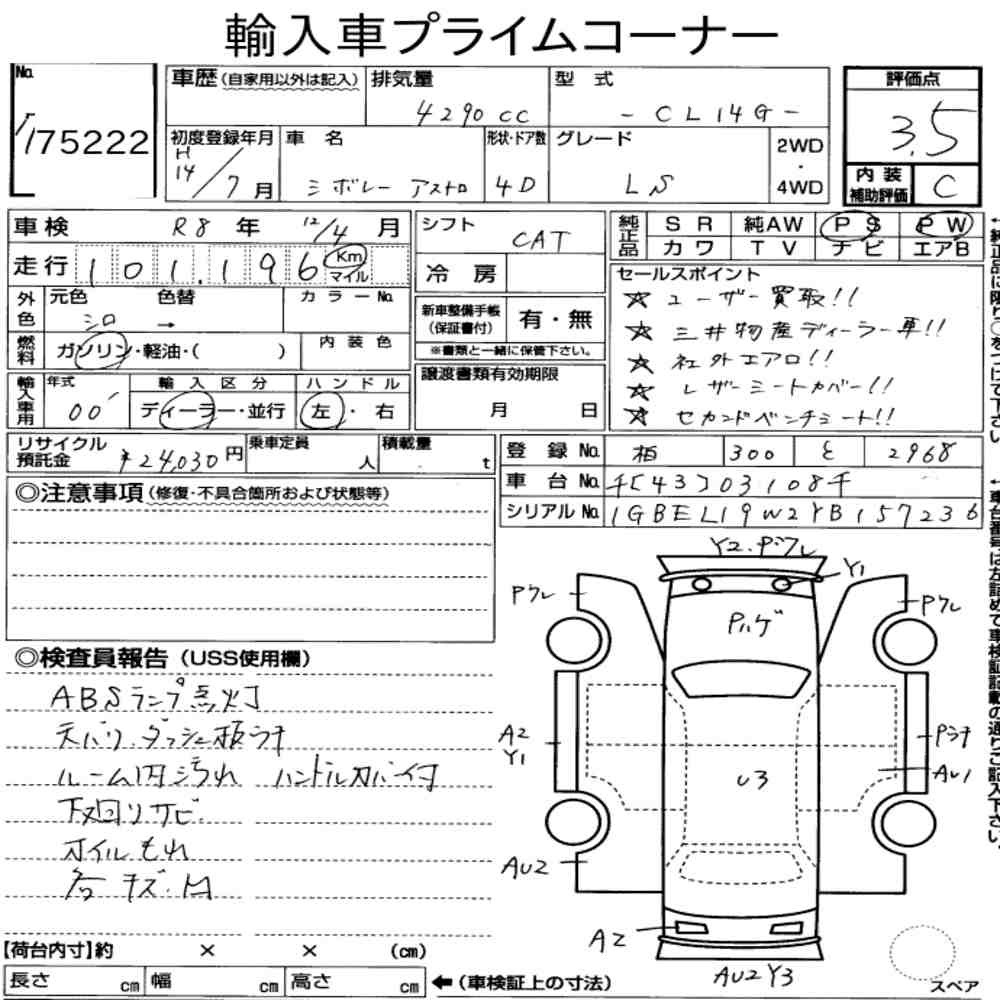 輸入車プライムコーナー
No. 75222
車歴(自家用以外は記入)
排気量 4290 CC
型式 - CL14G -
評価点 3.5
初度登録年月 H14/7月
車名 シボレー アストロ
形状・ドア数 4D
グレード LS
2WD・4WD
内装補助評価 C
車検 R8年 12/4月
シフト CAT
純正品 SR 純AW PS PW
カワ TV ナビ エアB
走行 101,196 Km マイル
冷房
セールスポイント
☆ ユーザー買取!!
☆ 三井物産ディーラー車!!
☆ 社外エアロ!!
☆ レザーシートカバー!!
☆ セカンドベンチシート!!
外色 元色 シロ 色替 → カラーNo.
新車整備手帳(保証書付) 有・無
※書類と一緒に保管下さい。
燃料 ガソリン・軽油・( )
内装色
譲渡書類有効期限
月 日
輸入車用 年式 00'
輸入区分 ディーラー・並行
ハンドル 左・右
リサイクル預託金 ¥24,030円
乗車定員 人
積載量 t
登録No. 柏 300 と 2968
車台No. 千[43]03108千
シリアルNo. 1GBEL19W2YB157236
←純正品に限り○をつけて下さい。
←車台番号は左詰めで車検証記載の通りご記入下さい。
◎注意事項(修復・不具合箇所および状態等)
◎検査員報告(USS使用欄)
ABSランプ点灯
天バリ、ダッシュ板ワチ
ルーム内汚れ ハンドルカバー付
下回りサビ
オイルもれ
各キズ・凹
Y2.Pヅレ
Y1
Pクレ
Pクレ
Pハゲ
A2
Y1
Pワチ
AU1
U3
AU2
A2
AU2Y3
スペア
【荷台内寸】約 × × (cm)
長さ cm 幅 cm 高さ cm ←(車検証上の寸法)